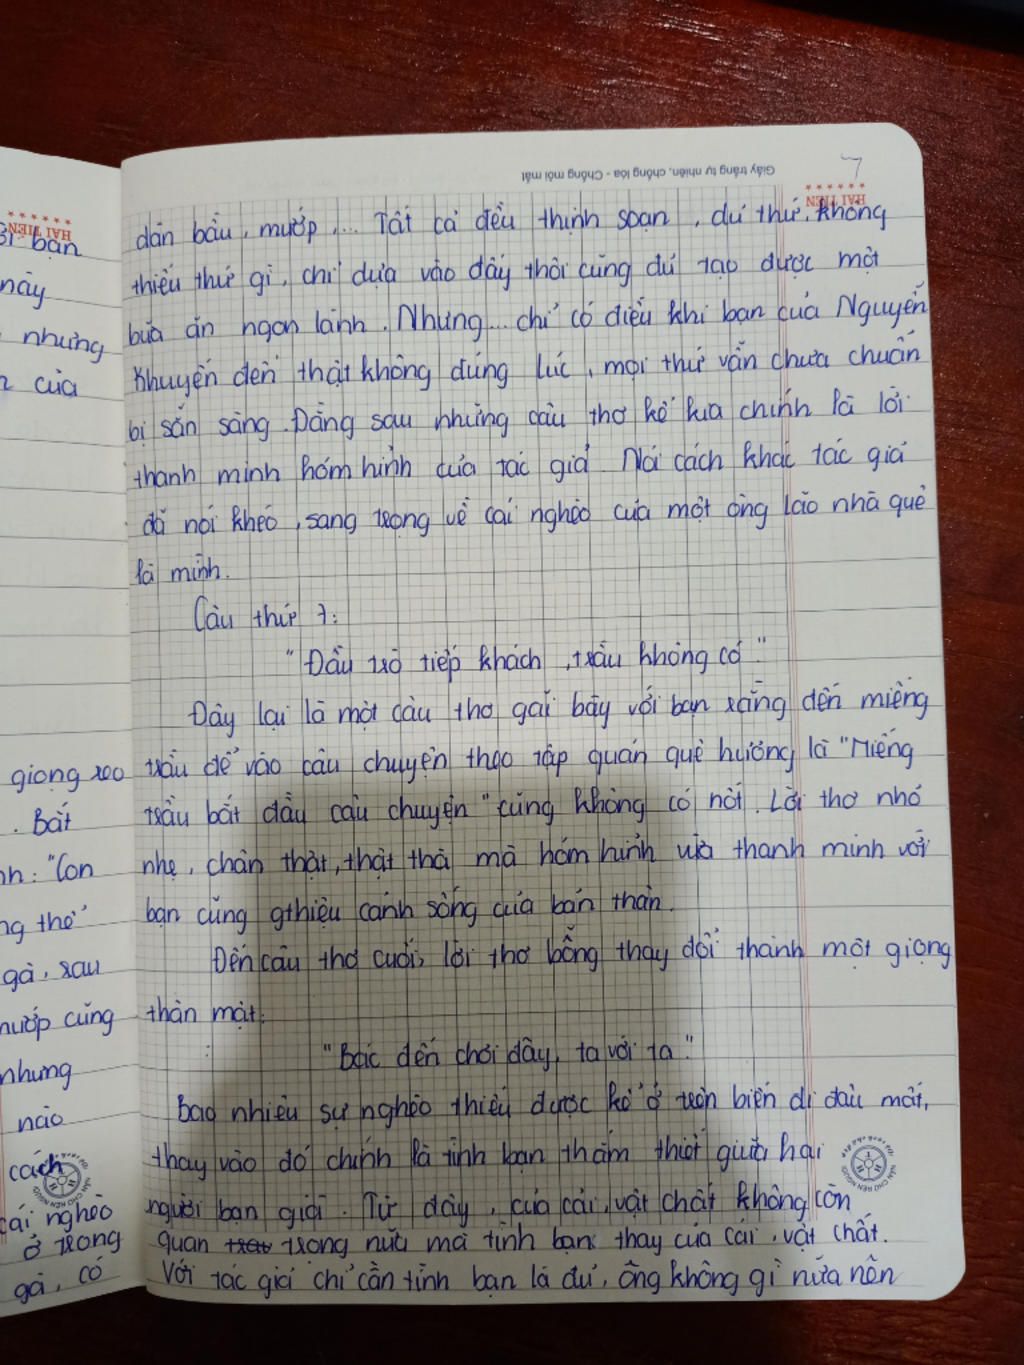 Giấy trắng tự nhiên, chống lóa - Chống mỏi mắt
7
HẢI TIẾN
dàn bầu, mướp,... Tất cả đều thịnh soạn, dư thừ, không
thiếu thứ gì, chỉ dựa vào đấy thôi cũng đủ tạo được một
bữa ăn ngon lành. Nhưng... chỉ có điều khi bạn của Nguyễn
Khuyến đến thật không đúng lúc, mọi thứ vẫn chưa chuẩn
bị sẵn sàng. Đằng sau những câu thơ kể kia chính là lời
thanh minh hóm hỉnh của tác giả. Nói cách khác tác giả
đã nói khéo, sang trọng về cái nghèo của một ông lão nhà quê
là mình.
Câu thứ 7:
"Đầu trò tiếp khách, trầu không có"
Đây lại là một câu thơ gãi bày với bạn rằng đến miếng
trầu để vào câu chuyện theo tập quán quê hương là "Miếng
trầu bắt đầu câu chuyện" cũng không có nốt. Lời thơ nhỏ
nhẹ, chân thật, thật thà mà hóm hỉnh vừa thanh minh với
bạn cũng gthiệu cảnh sống của bản thân.
Đến câu thơ cuối, lời thơ bỗng thay đổi thành một giọng
thân mật:
"Bác đến chơi đây, ta với ta"
Bao nhiêu sự nghèo thiếu được kể ở trên biến đi đâu mất,
thay vào đó chính là tình bạn thắm thiết giữa hai
người bạn già. Từ đây, của cải, vật chất không còn
quan trọng nữa mà tình bạn thay của cải, vật chất.
Với tác giả chỉ cần tình bạn là đủ, ông không gì nữa nên
HẢI TIẾN
bạn
này
nhưng
của
giọng
. Bất
nh: "Con
ng thơ"
gà, sau
mướp cũng
nhưng
nào
cách
cái nghèo
ở trong
gà, có